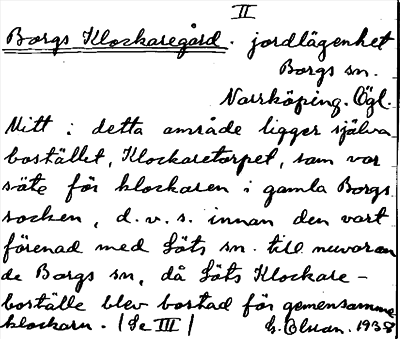 II
Borgs Klockaregård. jordlägenhet
Borgs sn.
Norrköping. Ögl.
Mitt i detta område ligger själva
bostället, Klockaretorpet, som var
säte för klockaren i gamla Borgs
socken, d.v.s. innan den vart
förenad med Löts sn. till nuvaran
de Borgs sn, då Löts Klockare-
boställe blev bostad för gemensamme
klockarn. (Se III) 1938